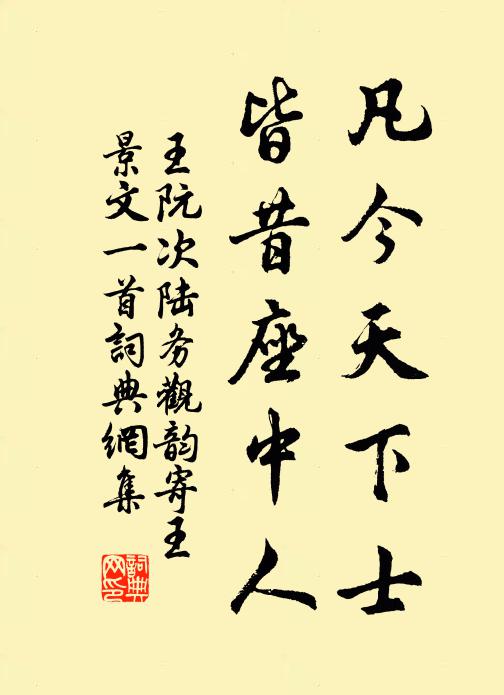 凡今天下士
皆昔座中人
王阮次陆务觀韵寄王
景文一首詞典網集
詞典网印